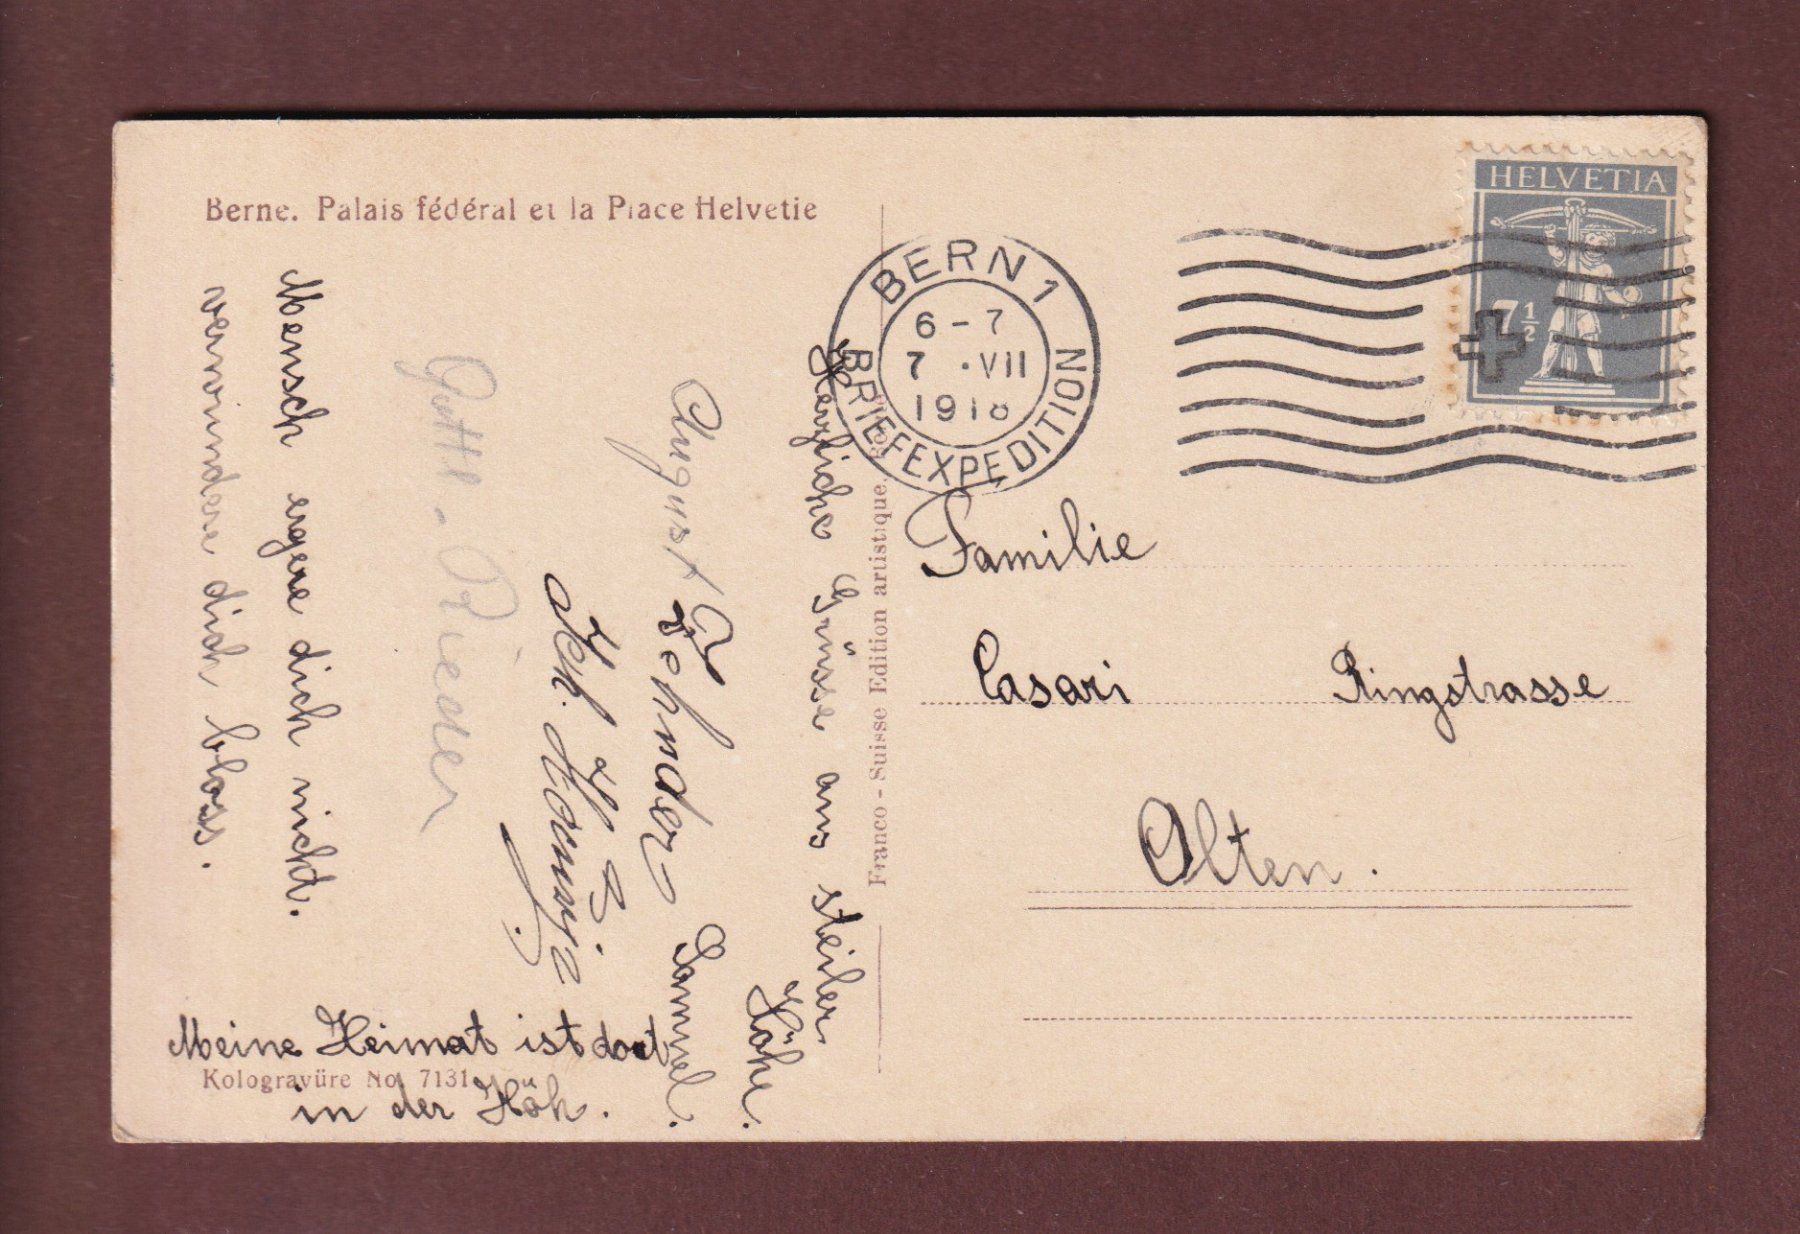 Berne. Palais fédéral et la Place Helvetie
HELVETIA
7½
BERN 1
6-7
7 ·VII
1918
BRIEFEXPEDITION
Familie
Casari Ringstrasse
Olten.
Franco-Suisse Edition artistique,
Herzliche Grüsse aus steiler
Höhe.
August Zehnder
Samuel.
Gottl. Rieder
Mensch ergere dich nicht.
verwundere dich bloss.
Meine Heimat ist dort
in der Höh.
Kologravüre No. 7131